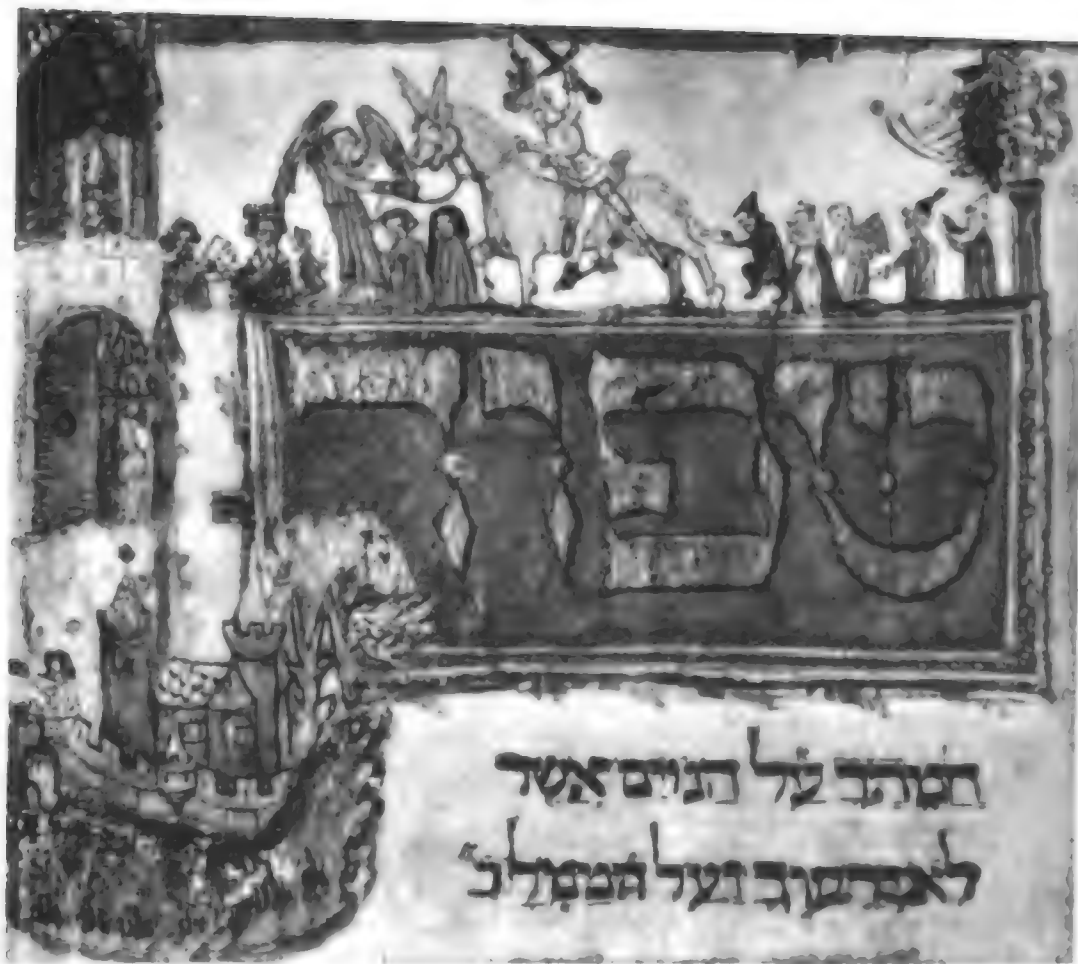 שפוך
חמתך על הגוים אשר
לא ידעוך ועל הממל